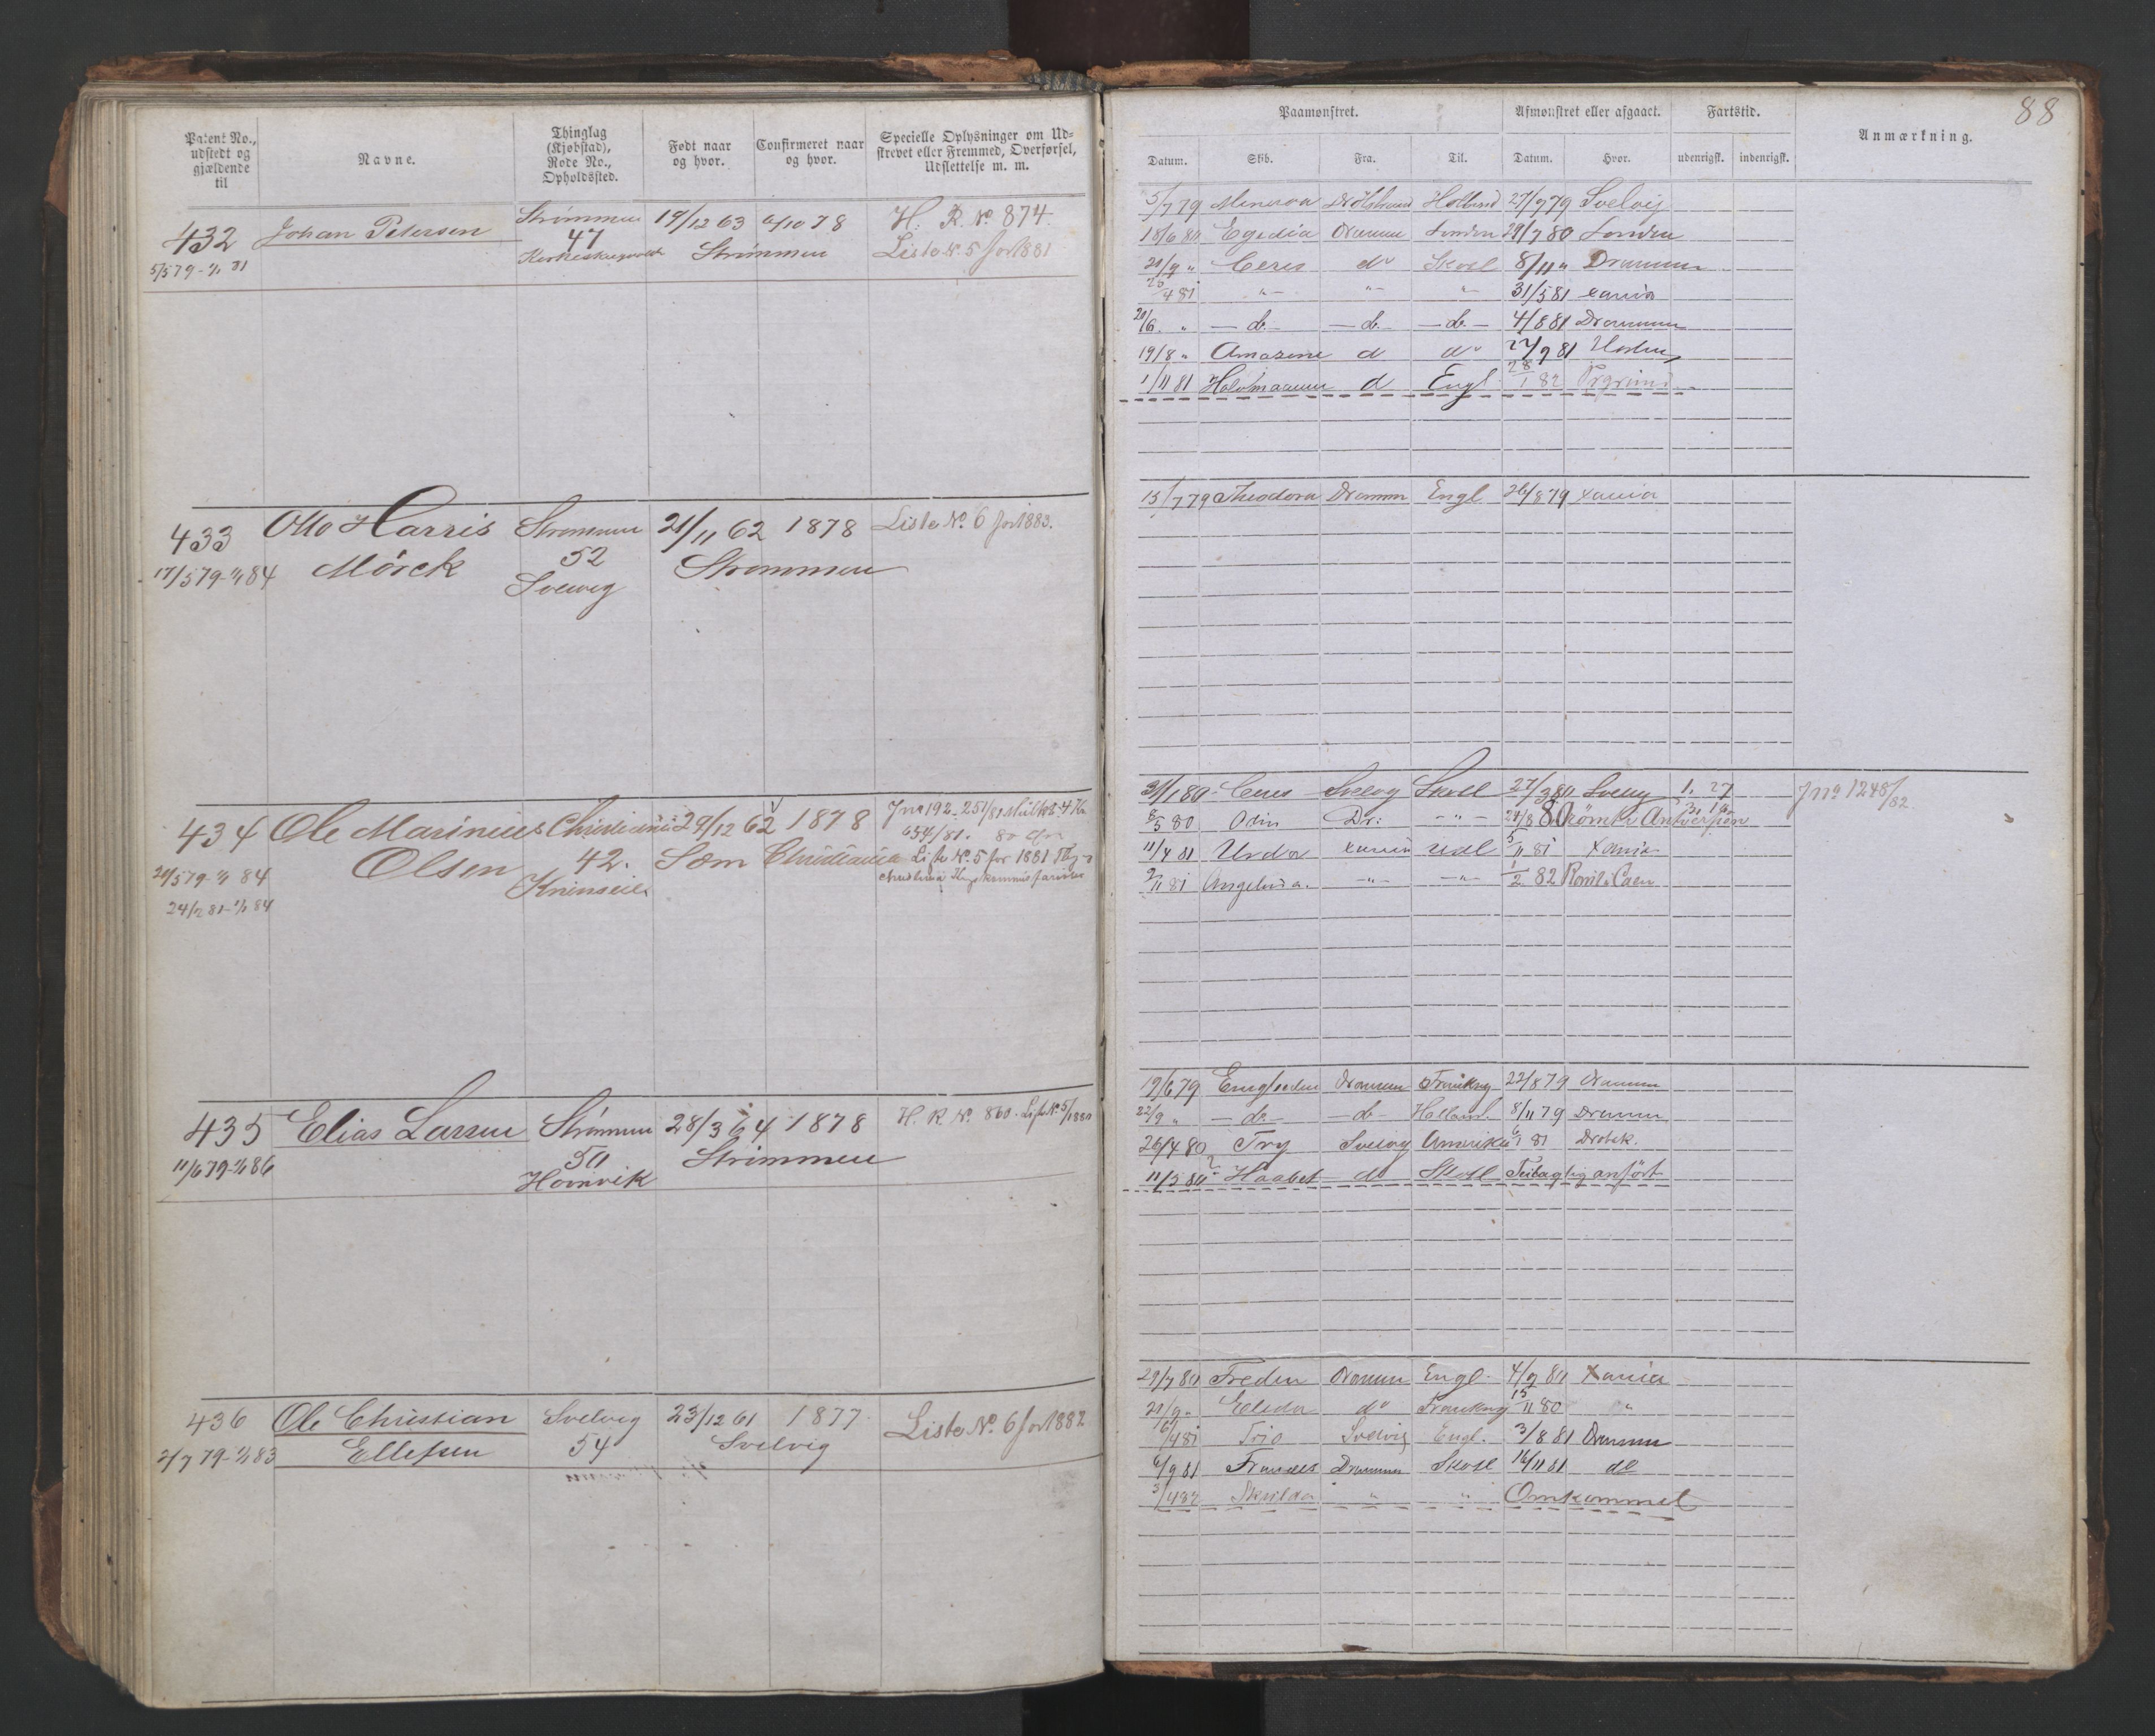 Patent No., udstedt og gjældende til
Navne.
Thinglag (Kjøbstad), Rode No., Opholdssted.
Født naar og hvor.
Confirmeret naar og hvor.
Specielle Oplysninger om Udstrevet eller Fremmed, Overførsel, Udslettelse m. m.
432 Johan Petersen Strømmen 19/12 63 6/10 78 H. R. No. 874
5/5 79 - 1/1 81 47 Strømmen Liste No. 5 for 1881
433 Otto Harris Strømmen 21/11 62 1878 Liste No. 6 for 1883.
17/5 79 - 1/1 84 Mörck 52 Strømmen
Svelvig
434 Ole Marinius Christiania 29/12 62 1878
20/5 79 - 1/1 84 Olsen 42. Som Christiania Liste No. 5 for 1881
24/2 81 - 1/1 84
435 Elias Larsen Strømmen 28/3 64 1878 H. R. No. 860. Liste No. 5/1880
11/6 79 - 1/1 86 50 Strømmen
Homvik
436 Ole Christian Svelvig 23/12 61 1877. Liste No. 6 for 1882
2/7 79 - 1/1 83 Ellefsen 54 Svelvig
88
Paamønstret. Afmønstret eller afgaaet. Fartstid. Anmærkning.
Datum. Skib. Fra. Til. Datum. Hvor. udenrigsk. indenrigsk.
5/7 79 Minerva Holland 27/9 79 Svelvig
18/6 80 Egedia Drammen London 29/7 80 London
21/9 " Ceres do Skotl 8/11 " Drammen
25/4 81 " " " 31/5 81 Xania
20/6 " do do do 4/8 81 Drammen
19/8 " Amazone d do 27/9 81
1/11 81 d Engl 28/1 82
15/7 79 Theodora Drammen Engl 26/8 79 Xania
31/1 80 Ceres Svelvig Skotl 27/3 80 Svelvig 1. 27 Jno 1248/82
8/5 80 Odin Dr: " Rømt i Antverpen
11/4 81 Urda Xania 5/11 81 Xania
9/11 81 Angelina. " " 1/2 82 Rømt i Caen
19/6 79 Drammen Frankrig 22/8 79 Drammen
22/9 " do do Holland. 8/11 79 Drammen
26/4 80 Try Svelvig Amerika 81 Drøbak.
11/5 80 ? Haabet do Skotl Feilagtig anført
29/7 80 Freden Drammen Engl. 4/9 80 Xania
21/9 " Elida do Frankrig 15/11 80 "
6/4 81 Trio Svelvig Engl. 3/8 81 Drammen
6/9 81 Frances Drammen Skotl 16/11 81 do
3/4 82 " " Omkommet